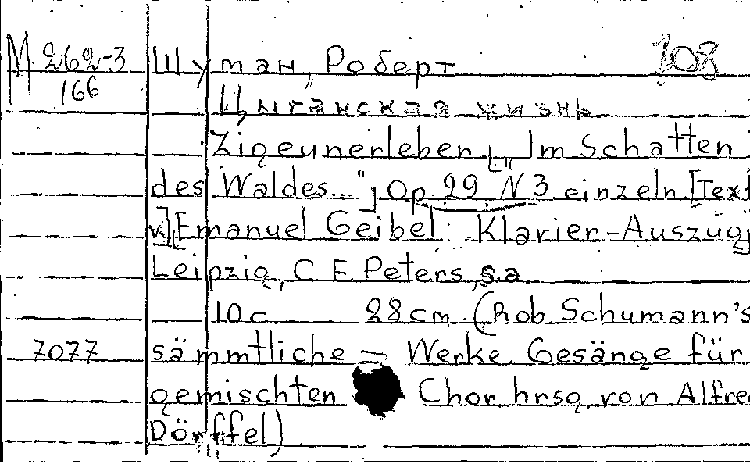 М 262-3 Шуман, Роберт 108
166
Цыганская жизнь
Zigeunerleben ["Im Schatten
des Waldes..."] Op 29 N 3 einzeln [Text
v] Emanuel Geibel. Klavier-Auszug,
Leipzig, C F Peters, s.a
10 c 28 cm (Rob Schumann's
7077 sämmtliche = Werke. Gesänge für
gemischten Chor hrsg von Alfre
Dörffel)